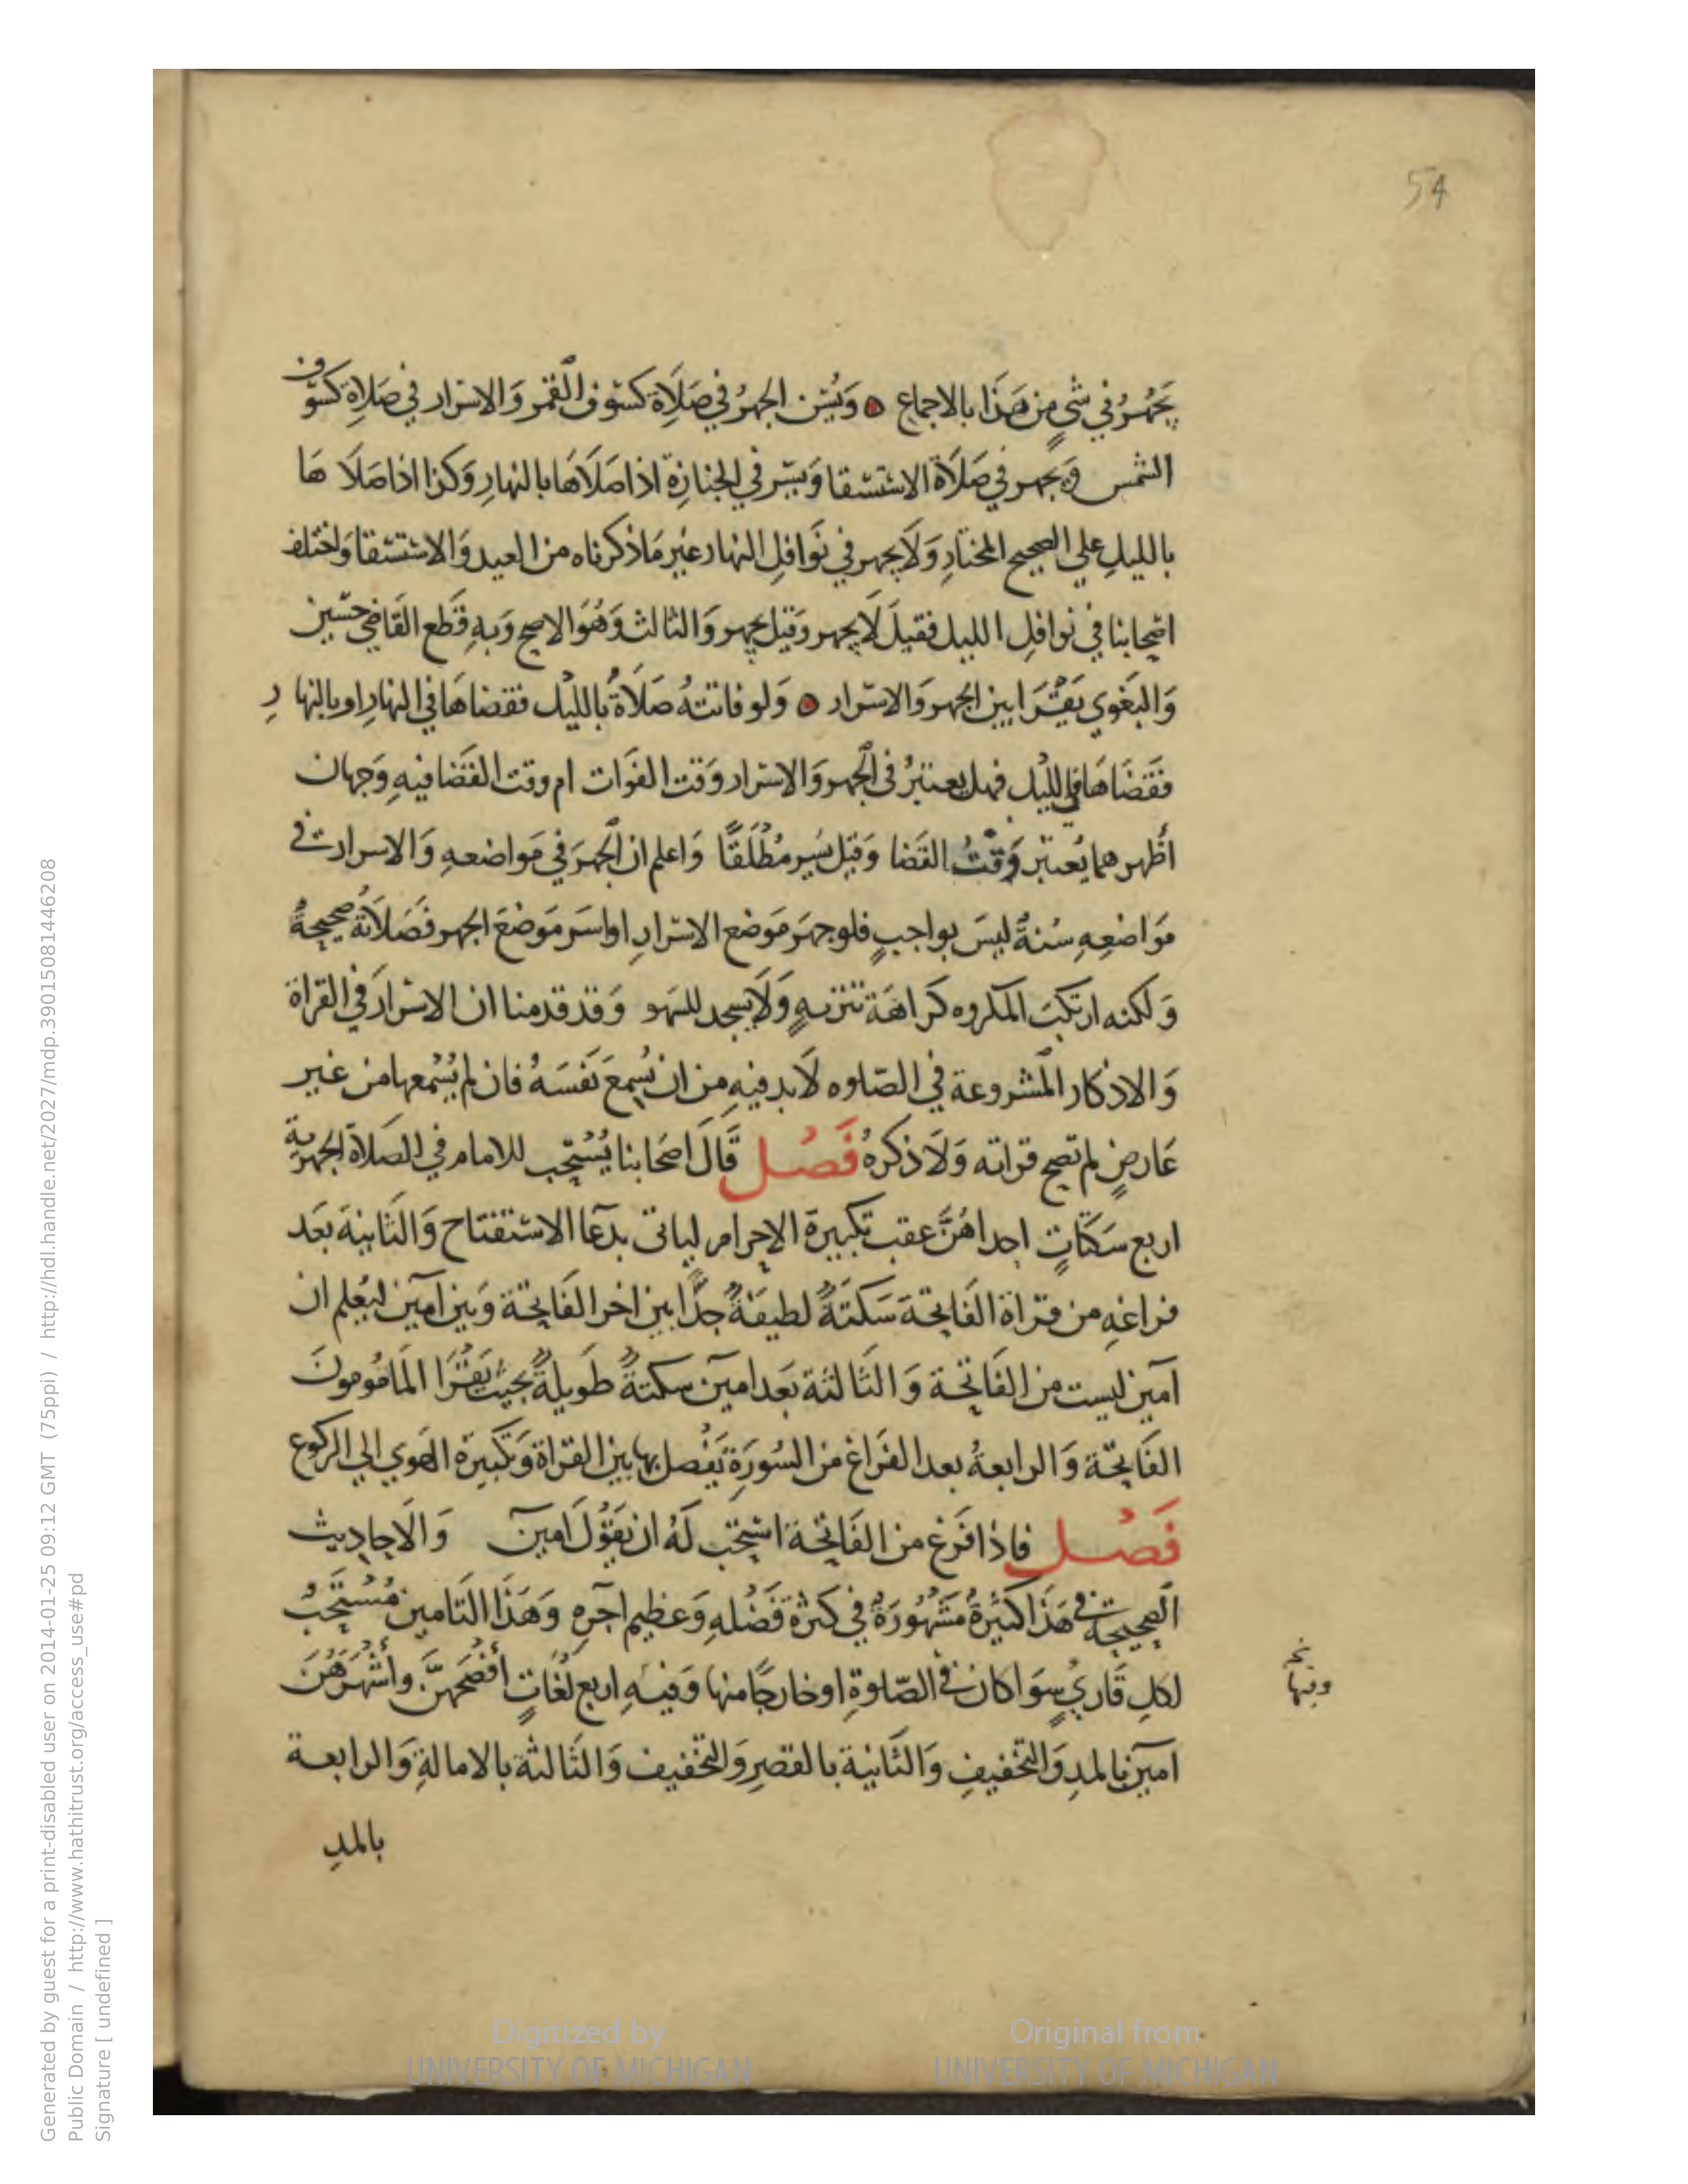 54
يَجْهَرُ في شيٍ من هَذا بالاجماع ۞ وَيُسَن الجهرُ في صَلَاةِ كسُوف القمر وَالاسرار في صَلاة كسُوف
الشمس وَيجهر في صَلَاة الاستسقا وَيسِر في الجنازة اذا صَلَاهَا بالنهارِ وَكذا اذا صَلَا هَا
بالليلِ علي الصحيح المختارِ وَلَا يجهر في نَوافلِ النهار غير مَا ذكرناه من العيد وَالاستسقا وَاختلف
اصحابنا في نوافلِ الليل فقيلَ لَا يجهر وَقيل يجهر وَالثالث وَهُوَ الاصح وَبهِ قَطع القَاضي حسَين
وَالبَغوي يَقرَا بين الجهر وَالاسرار ۞ وَلو فاتتهُ صَلَاةُ بالليْل فقضاهَا في النهارِ او بالنهارِ
فَقضَاهَا في الليْل فهل يعتبرُ في الجهر وَالاسرار وَقت الفوَات ام وقت القضا فيهِ وَجهان
أظهرهما يُعتبر وَقتُ القضا وَقيل يُسِر مُطْلَقًا وَاعلم ان الجهرَ في مَواضعهِ وَالاسرار في
مَوَاضعِهِ سُنةٌ ليسَ بواجبٍ فلو جهَر مَوضع الاسرارِ او اسَر مَوضعَ الجهر فَصَلَاتهُ صحيحةٌ
وَلكنه ارتكبَ المكروه كرَاهَة تنزيهٍ وَلَا يسجد للسَهو وَقد قدمنا ان الاسرَارَ في القراة
وَالاذكار المشروعة في الصّلوه لَا بد فيهِ من ان يُسمِعَ نَفسَهُ فان لم يُسْمعها من غير
عَارضٍ لم تصح قراته وَلَا ذكرهُ فَصْل قَالَ اصحَابنا يُستحِب للامام في الصَلاة الجهرية
اربع سَكتَاتٍ احداهُنَّ عقب تكبيرة الاحرام لياتى بدعَا الاستفتاح وَالثَانية بعَد
فراغهِ من قراة الفَاتحة سَكتَةٌ لطيفَةٌ جدًّا بين اخر الفَاتحة وَبين آمين ليُعلم ان
آمين ليست من الفَاتحة وَالثَالثة بعَد امين سكتةٌ طَويلةٌ بحيث يَقرَا المَامُومونَ
الفَاتحة وَالرابعةُ بعد الفرَاغ من السُورَةِ يَفْصل بها بين القراة وَتكبيرة الهَوي الي الركوع
فَصْل فاذا فَرغ من الفَاتحة استحِب لَهُ ان يقُول امينَ وَالَاحاديث
الصحيحة في هَذا كثيرةٌ مَشهُورَةٌ في كثرة فَضْلهِ وَعظيم اجرهِ وَهَذَا التَامين مُسْتَحَبُ
لكلِ قَاريٍ سوَا كان في الصّلوةِ او خارجًا منها وَفيهِ اربع لُغَاتٍ أفْصَحهنَّ وأشْهَرَهُنَ
آمين بالمدِ وَالتخفيفِ وَالثَانية بالقصرِ وَالتخفيف وَالثَالثة بالامالةِ وَالرابعة
بالمدِ
وفيها
Generated by guest for a print-disabled user on 2014-01-25 09:12 GMT (75ppi) / http://hdl.handle.net/2027/mdp.39015081446208
Public Domain / http://www.hathitrust.org/access_use#pd
Signature [ undefined ]
Digitized by
UNIVERSITY OF MICHIGAN
Original from
UNIVERSITY OF MICHIGAN